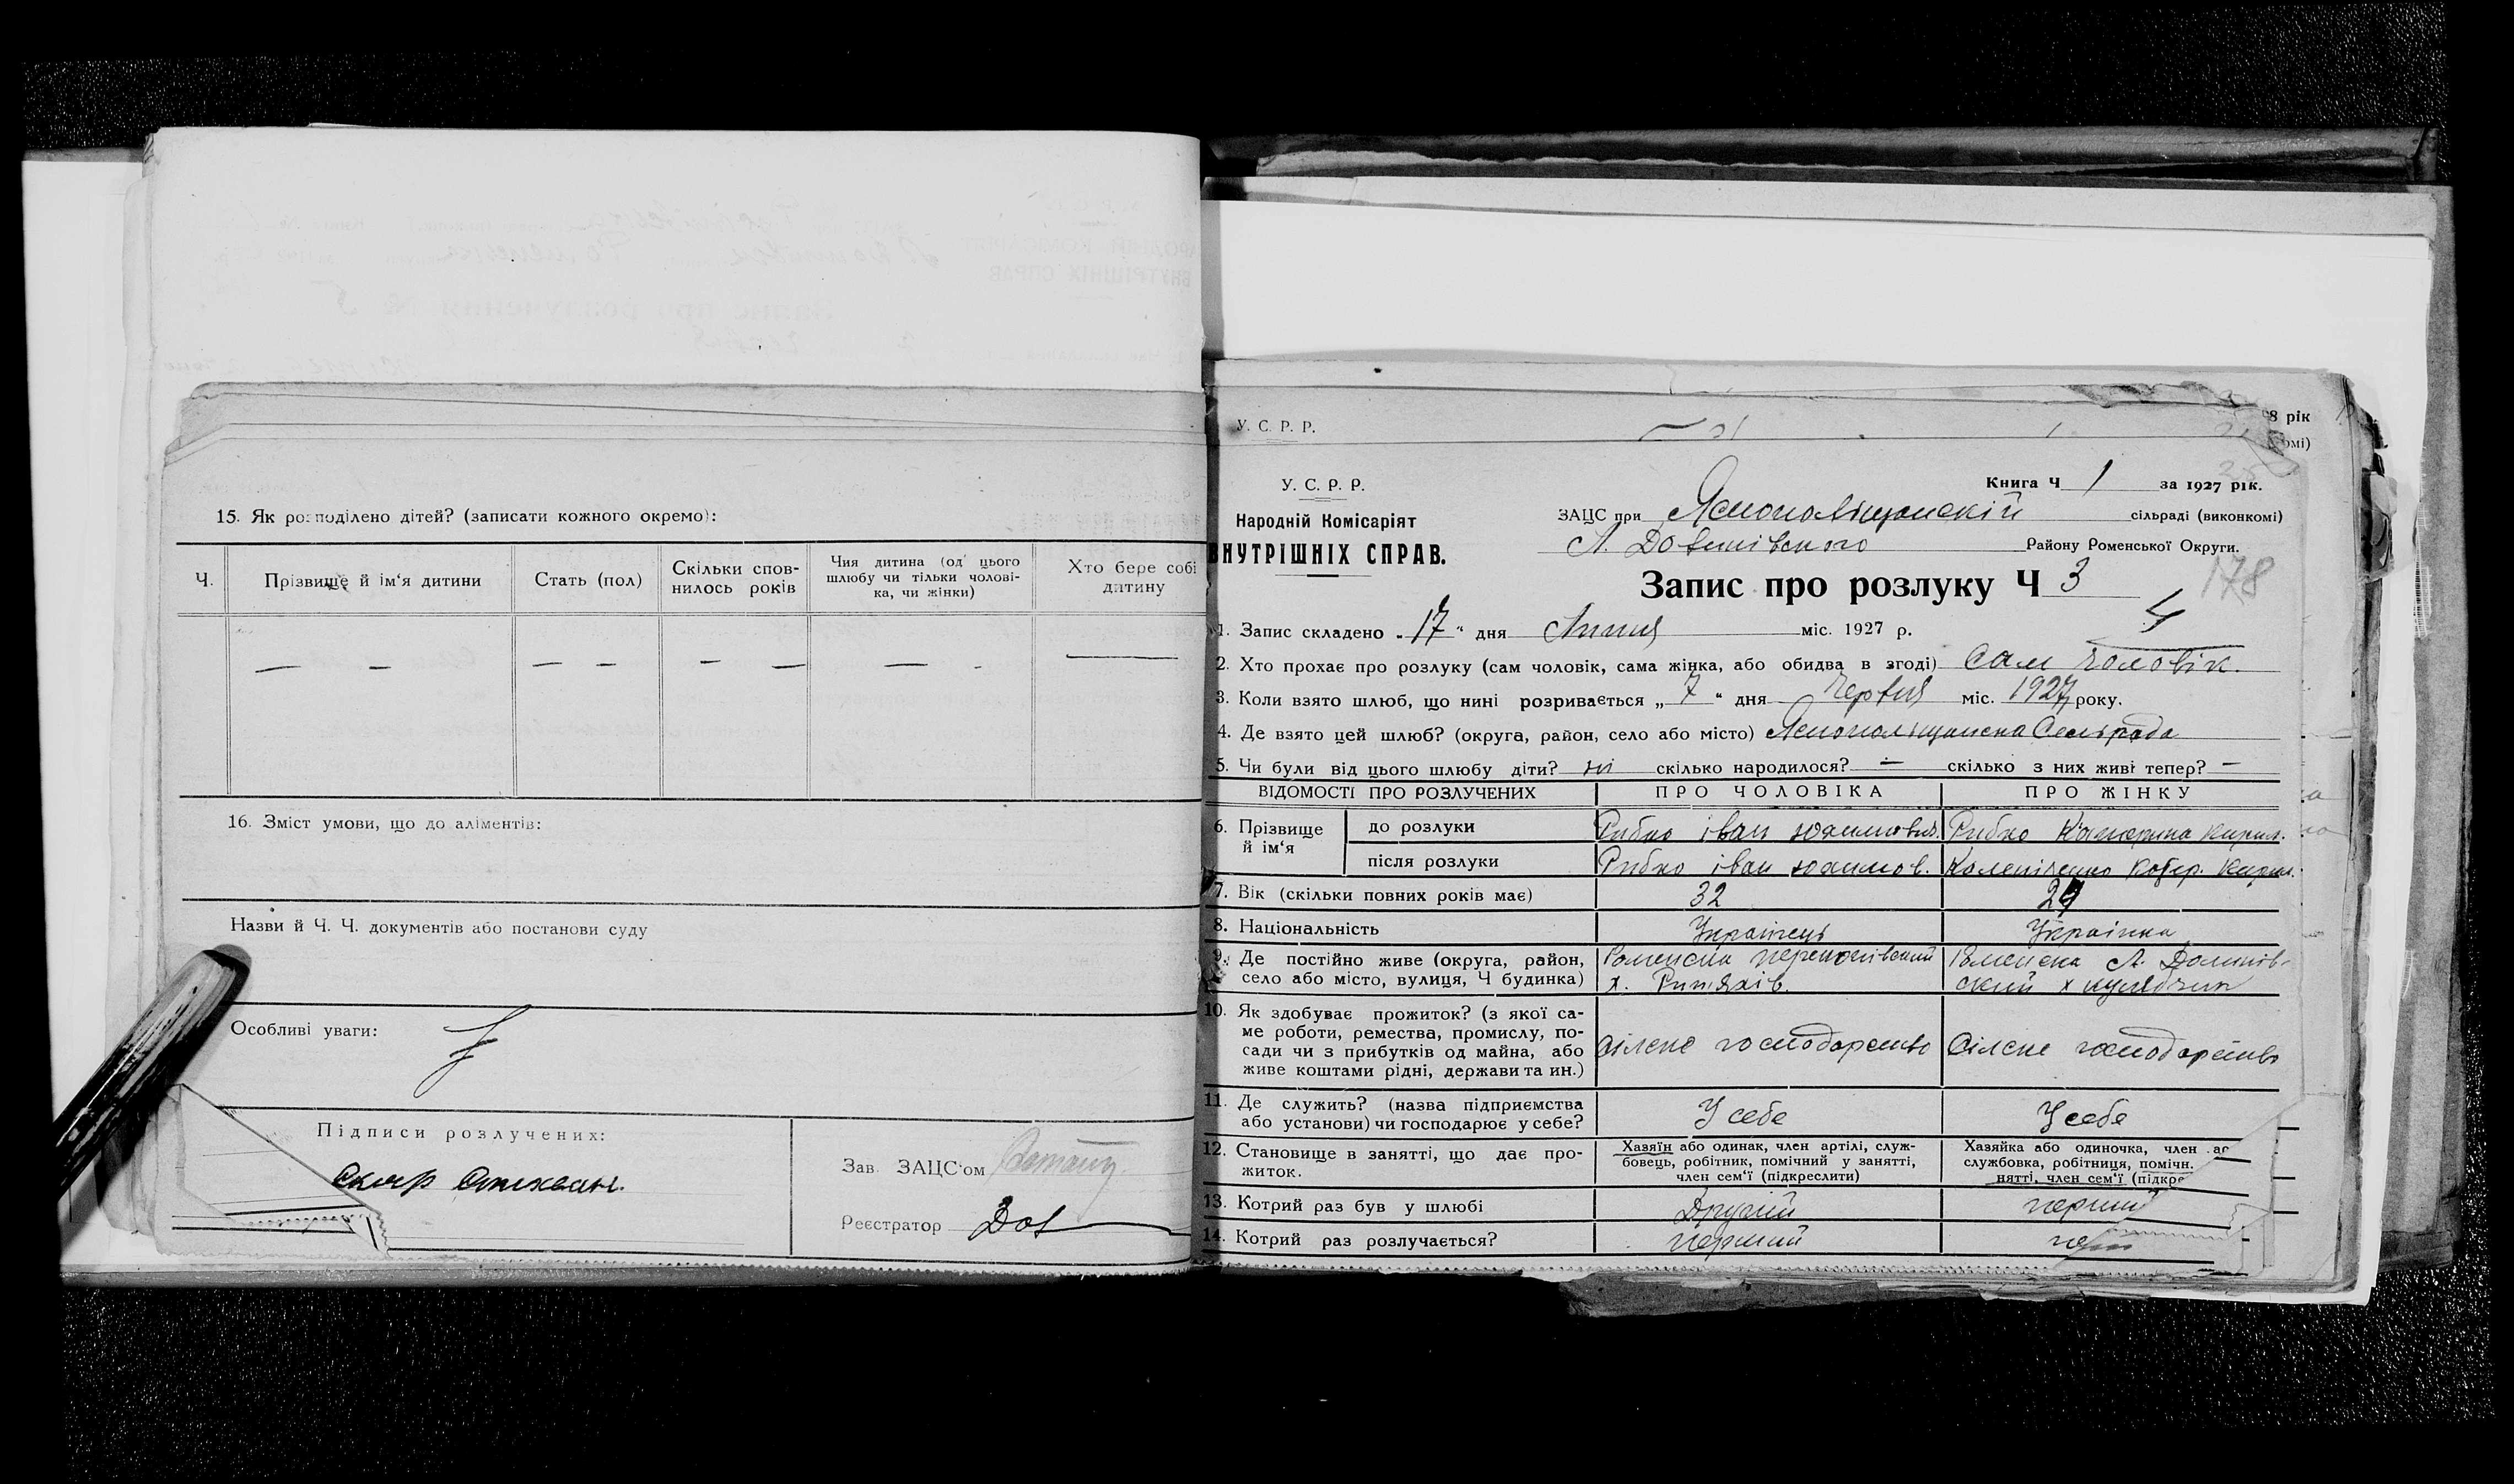 15. Як розподілено дітей? (записати кожного окремо):
Ч. Прізвище й ім‘я дитини Стать (пол) Скільки спов-нилось років Чия дитина (од цього шлюбу чи тільки чолові-ка, чи жінки) Хто бере собі дитину
— — — — — — — - —
16. Зміст умови, що до аліментів:
Назви й Ч. Ч. документів або постанови суду
Особливі уваги:
Підписи розлучених:
Зав. ЗАЦС‘ом
Реєстратор
У. С. Р. Р.
8 рік
омі)
У. С. Р. Р.
Книга Ч 1 за 1927 рік.
Народній Комісаріят
ВНУТРІШНІХ СПРАВ.
ЗАЦС при Яснопольщанскій сільраді (виконкомі)
Району Роменської Округи.
178
Запис про розлуку Ч 3
4
1. Запис складено „17“ дня Липня міс. 1927 р.
2. Хто прохає про розлуку (сам чоловік, сама жінка, або обидва в згоді) Сам чоловік.
3. Коли взято шлюб, що нині розривається „7“ дня Червня міс. 1927 року.
4. Де взято цей шлюб? (округа, район, село або місто) Яснопольщанска Сельрада
5. Чи були від цього шлюбу діти? ні скілько народилося? — скілько з них живі тепер? —
ВІДОМОСТІ ПРО РОЗЛУЧЕНИХ ПРО ЧОЛОВІКА ПРО ЖІНКУ
6. Прізвище й ім‘я
до розлуки Рибко іван Рибко Катерина Кирил.
після розлуки Рибко іван Катер. Кирил.
7. Вік (скільки повних років має) 32
8. Національність Українець Українка
9. Де постійно живе (округа, район, Роменска
село або місто, вулиця, Ч будинка) х. Рипяхів.
10. Як здобуває прожиток? (з якої са-
ме роботи, ремества, промислу, по-
сади чи з прибутків од майна, або
живе коштами рідні, держави та ин.)
сілске господарство Сілске господарство
11. Де служить? (назва підприємства
або установи) чи господарює у себе? У себе У себе
12. Становище в занятті, що дає про-
житок.
Хазяїн або одинак, член артілі, служ-
бовець, робітник, помічний у занятті,
член сем‘ї (підкреслити)
Хазяйка або одиночка, член ар
службовка, робітниця, помічн.
нятті, член сем‘ї (підкре
13. Котрий раз був у шлюбі Другій перший
14. Котрий раз розлучається? перший